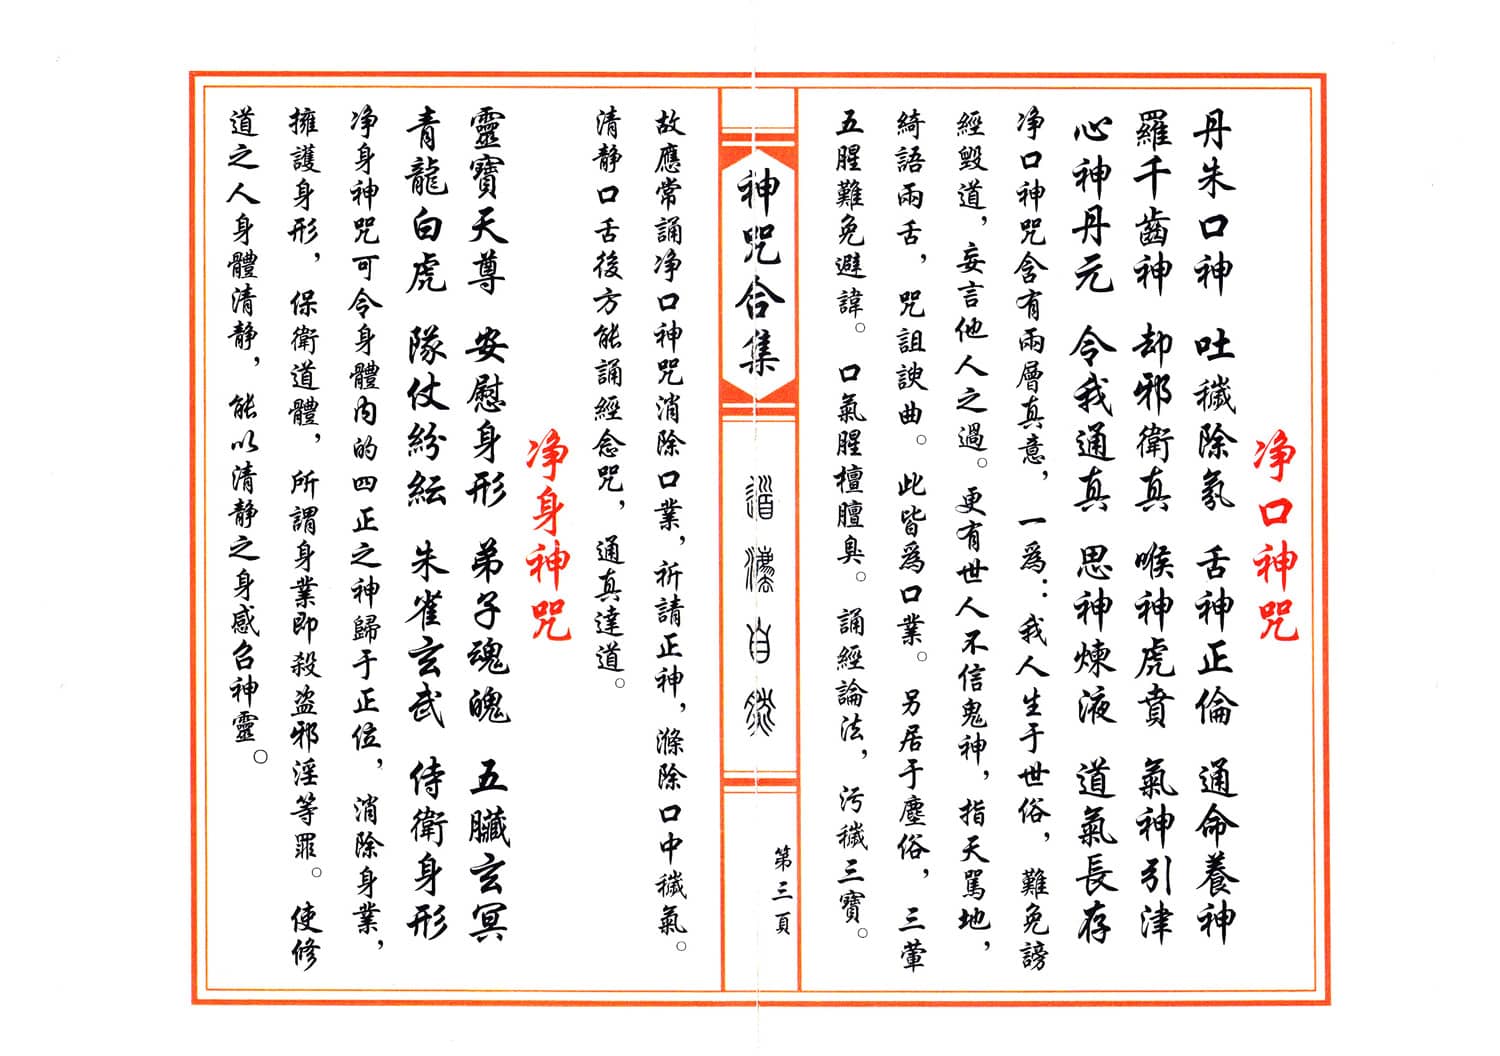 净口神咒
丹朱口神　吐穢除氛　舌神正倫　通命養神
羅千齒神　却邪衛真　喉神虎賁　氣神引津
心神丹元　令我通真　思神煉液　道氣長存
净口神咒含有兩層真意，一爲：我人生于世俗，難免謗
經毀道，妄言他人之過。更有世人不信鬼神，指天罵地，
綺語兩舌，咒詛諛曲。此皆爲口業。另居于塵俗，三葷
五腥難免避諱。口氣腥檀膻臭。誦經論法，污穢三寶。
神咒合集
道法自然
第三頁
故應常誦净口神咒消除口業，祈請正神，滌除口中穢氣。
清静口舌後方能誦經念咒，通真達道。
净身神咒
靈寶天尊　安慰身形　弟子魂魄　五臟玄冥
青龍白虎　隊仗紛紜　朱雀玄武　侍衛身形
净身神咒可令身體内的四正之神歸于正位，消除身業，
擁護身形，保衛道體，所謂身業即殺盗邪淫等罪。使修
道之人身體清静，能以清静之身感召神靈。